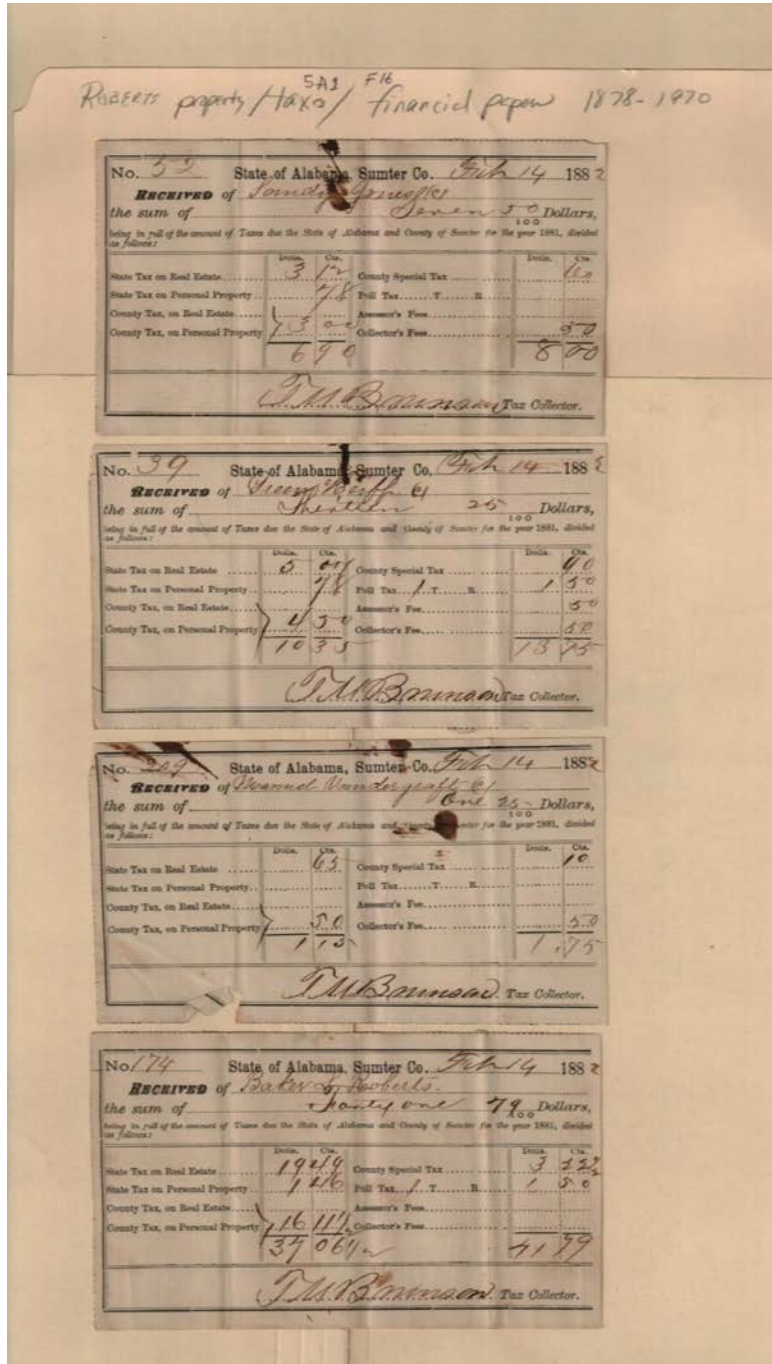 5A1 F16
ROBERTS property / taxes / financial papers 1878-1970
No. 52 State of Alabama, Sumter Co. Feb 14 1882
RECEIVED of Sandy
the sum of Seven 50/100 Dollars,
being in full of the amount of Taxes due the State of Alabama and County of Sumter for the year 1881, divided
as follows:
Dolls. Cts. Dolls. Cts.
State Tax on Real Estate 3 12 County Special Tax 60
State Tax on Personal Property 78 Poll Tax T. R.
County Tax, on Real Estate Assessor's Fees
County Tax, on Personal Property 3 00 Collector's Fees 50
6 90 8 00
T. M. Brunson Tax Collector.
No. 39 State of Alabama, Sumter Co. Feb 14 1882
RECEIVED of
the sum of Thirteen 25/100 Dollars,
being in full of the amount of Taxes due the State of Alabama and County of Sumter for the year 1881, divided
as follows:
Dolls. Cts. Dolls. Cts.
State Tax on Real Estate 5 07 County Special Tax 90
State Tax on Personal Property 78 Poll Tax 1 T. R. 1 50
County Tax, on Real Estate Assessor's Fee 50
County Tax, on Personal Property 4 50 Collector's Fee 50
10 35 13 75
T. M. Brunson Tax Collector.
No. 209 State of Alabama, Sumter Co. Feb 14 1882
RECEIVED of Vandergraft
the sum of One 25/100 Dollars,
being in full of the amount of Taxes due the State of Alabama and County of Sumter for the year 1881, divided
as follows:
Dolls. Cts. Dolls. Cts.
State Tax on Real Estate 65 County Special Tax 10
State Tax on Personal Property Poll Tax T. R.
County Tax, on Real Estate Assessor's Fee
County Tax, on Personal Property 50 Collector's Fee 50
1 15 1.75
T. M. Brunson Tax Collector.
No 174 State of Alabama, Sumter Co. Feb 14 1882
RECEIVED of Baker & Roberts.
the sum of Forty one 79/100 Dollars,
being in full of the amount of Taxes due the State of Alabama and County of Sumter for the year 1881, divided
as follows:
Dolls. Cts. Dolls. Cts.
State Tax on Real Estate 19 49 County Special Tax 3 22½
State Tax on Personal Property 1 46 Poll Tax 1 T. R. 1 50
County Tax, on Real Estate Assessor's Fees
County Tax, on Personal Property 16 11½ Collector's Fees
37 06½ 41 79
T. M. Brunson Tax Collector.